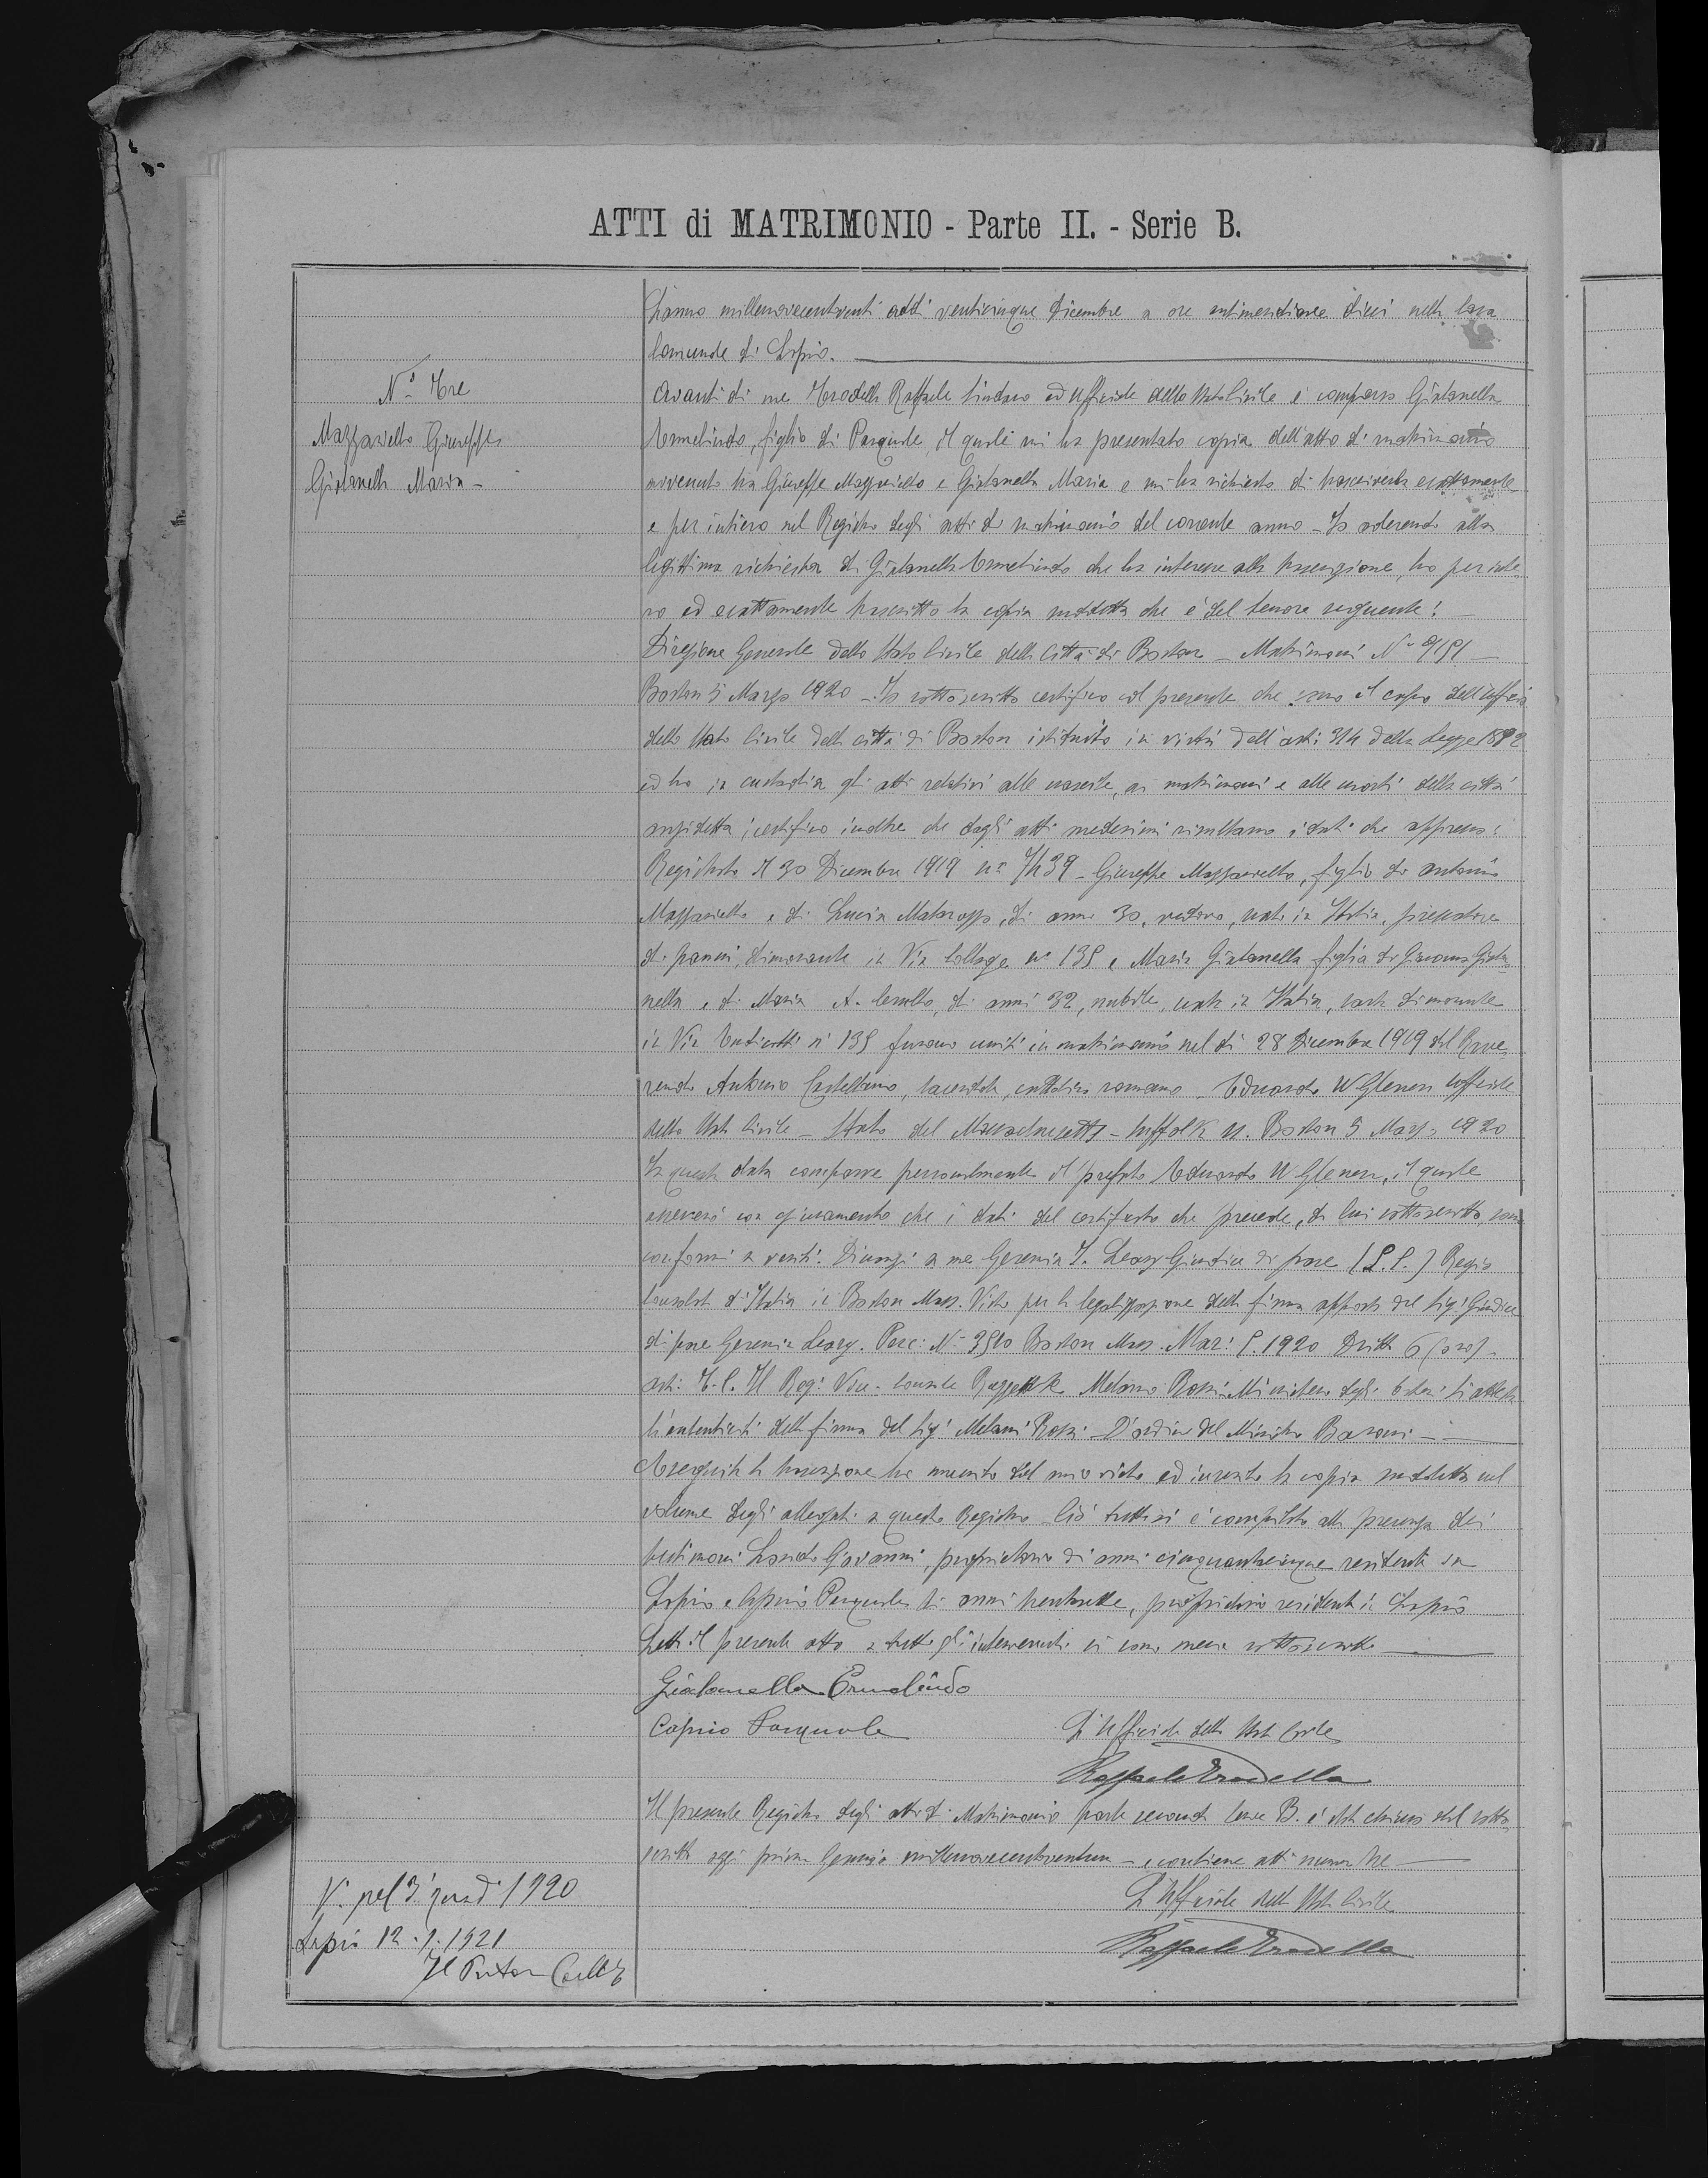 ATTI di MATRIMONIO - Parte II. - Serie B.
L'anno millenovecentoventi addì venticinque Dicembre a ore antimeridiane dieci nella Casa
Comunale di Lapio.
N.º Tre
Mazzariello Giuseppe
Gialanella Maria -
Avanti di me Trodella Raffaele Sindaco ed Ufficiale dello Stato Civile è comparso Gialanella
Ermelindo, figlio di Pasquale, il quale mi ha presentato copia dell'atto di matrimonio
avvenuto tra Giuseppe Mazzariello e Gialanella Maria e mi ha richiesto di trascriverla esattamente
e per intiero nel Registro degli atti di matrimonio del corrente anno - Io aderendo alla
legittima richiesta di Gialanella Ermelindo che ha interesse alla trascrizione, ho per inte
ro ed esattamente trascritto la copia suddetta che è del tenore seguente:
Direzione Generale dello Stato Civile della Città di Boston - Matrimoni Nº
Boston 5 Marzo 1920 - Io sottoscritto certifico col presente che sono il capo dell'ufficio
dello Stato Civile della città di Boston istituito in virtù dell'art: 314 della Legge 1892
ed ho in custodia gli atti relativi alle nascite, ai matrimoni e alle morti della città
anzidetta; certifico inoltre che dagli atti medesimi risultano i dati che appresso:
Registrato il 30 Dicembre 1919 nº 7439 - Giuseppe Mazzariello, figlio di Antonio
Mazzariello e di Lucia Matarazzo, di anni 30, vedovo, nato in Italia, pressatore
di panni, dimorante in Via Cottage nº 135 e Maria Gialanella figlia di Giacomo Giala
nella e di Maria A. Cerullo, di anni 32, nubile, nata in Italia, sarta dimorante
in Via Endicott nº 135 furono uniti in matrimonio nel dì 28 Dicembre 1919 dal Reve
rendo Antonio Castellano, sacerdote, cattolico romano - Eduardo W Glenen Ufficiale
dello Stato Civile - Stato del Massachusetts - Suffolk u. Boston 5 Marzo 1920
In questa data comparve personalmente il prefato Eduardo W Glenen, il quale
asseverò con giuramento che i dati del certificato che precede, da lui sottoscritto, sono
conformi a verità. Dinanzi a me Geremia J. Leary Giudice di pace (L.S.) Regio
Consolato d'Italia in Boston Mass. Visto per la legalizzazione della firma apposta del Sig. Giudice
di pace Geremia Leary. Perc: Nº 3510 Boston Mass. Mar: 5. 1920 Dritti 6
art: Il Reg: Vice-Console Reggente Melano Rossi Ministero degli Esteri si attesta
l'autenticità della firma del Sig: Melani Rossi - D'ordine del Ministro Baroni -
Eseguita la trascrizione ho munito del mio visto ed inserito la copia suddetta nel
volume degli allegati a questo Registro - Ciò tutto si è compilato alla presenza dei
testimoni Giovanni, proprietario di anni cinquantacinque residente in
Lapio e Caprio Pasquale di anni trentasette, proprietario residente in Lapio
Letto il presente atto a tutti gli intervenuti si sono meco sottoscritti
Gialanella Ermelindo
Caprio Pasquale
L'Ufficiale dello Stato Civile
Raffaele Trodella
Il presente Registro degli atti di Matrimonio parte seconda Serie B. è stato chiuso dal sotto
scritto oggi primo Gennaio millenovecentoventuno - e contiene atti numero tre
L'Ufficiale dello Stato Civile
Raffaele Trodella
V. pel 3º quad. 1920
Lapio 12.1.1921
Il Pretore